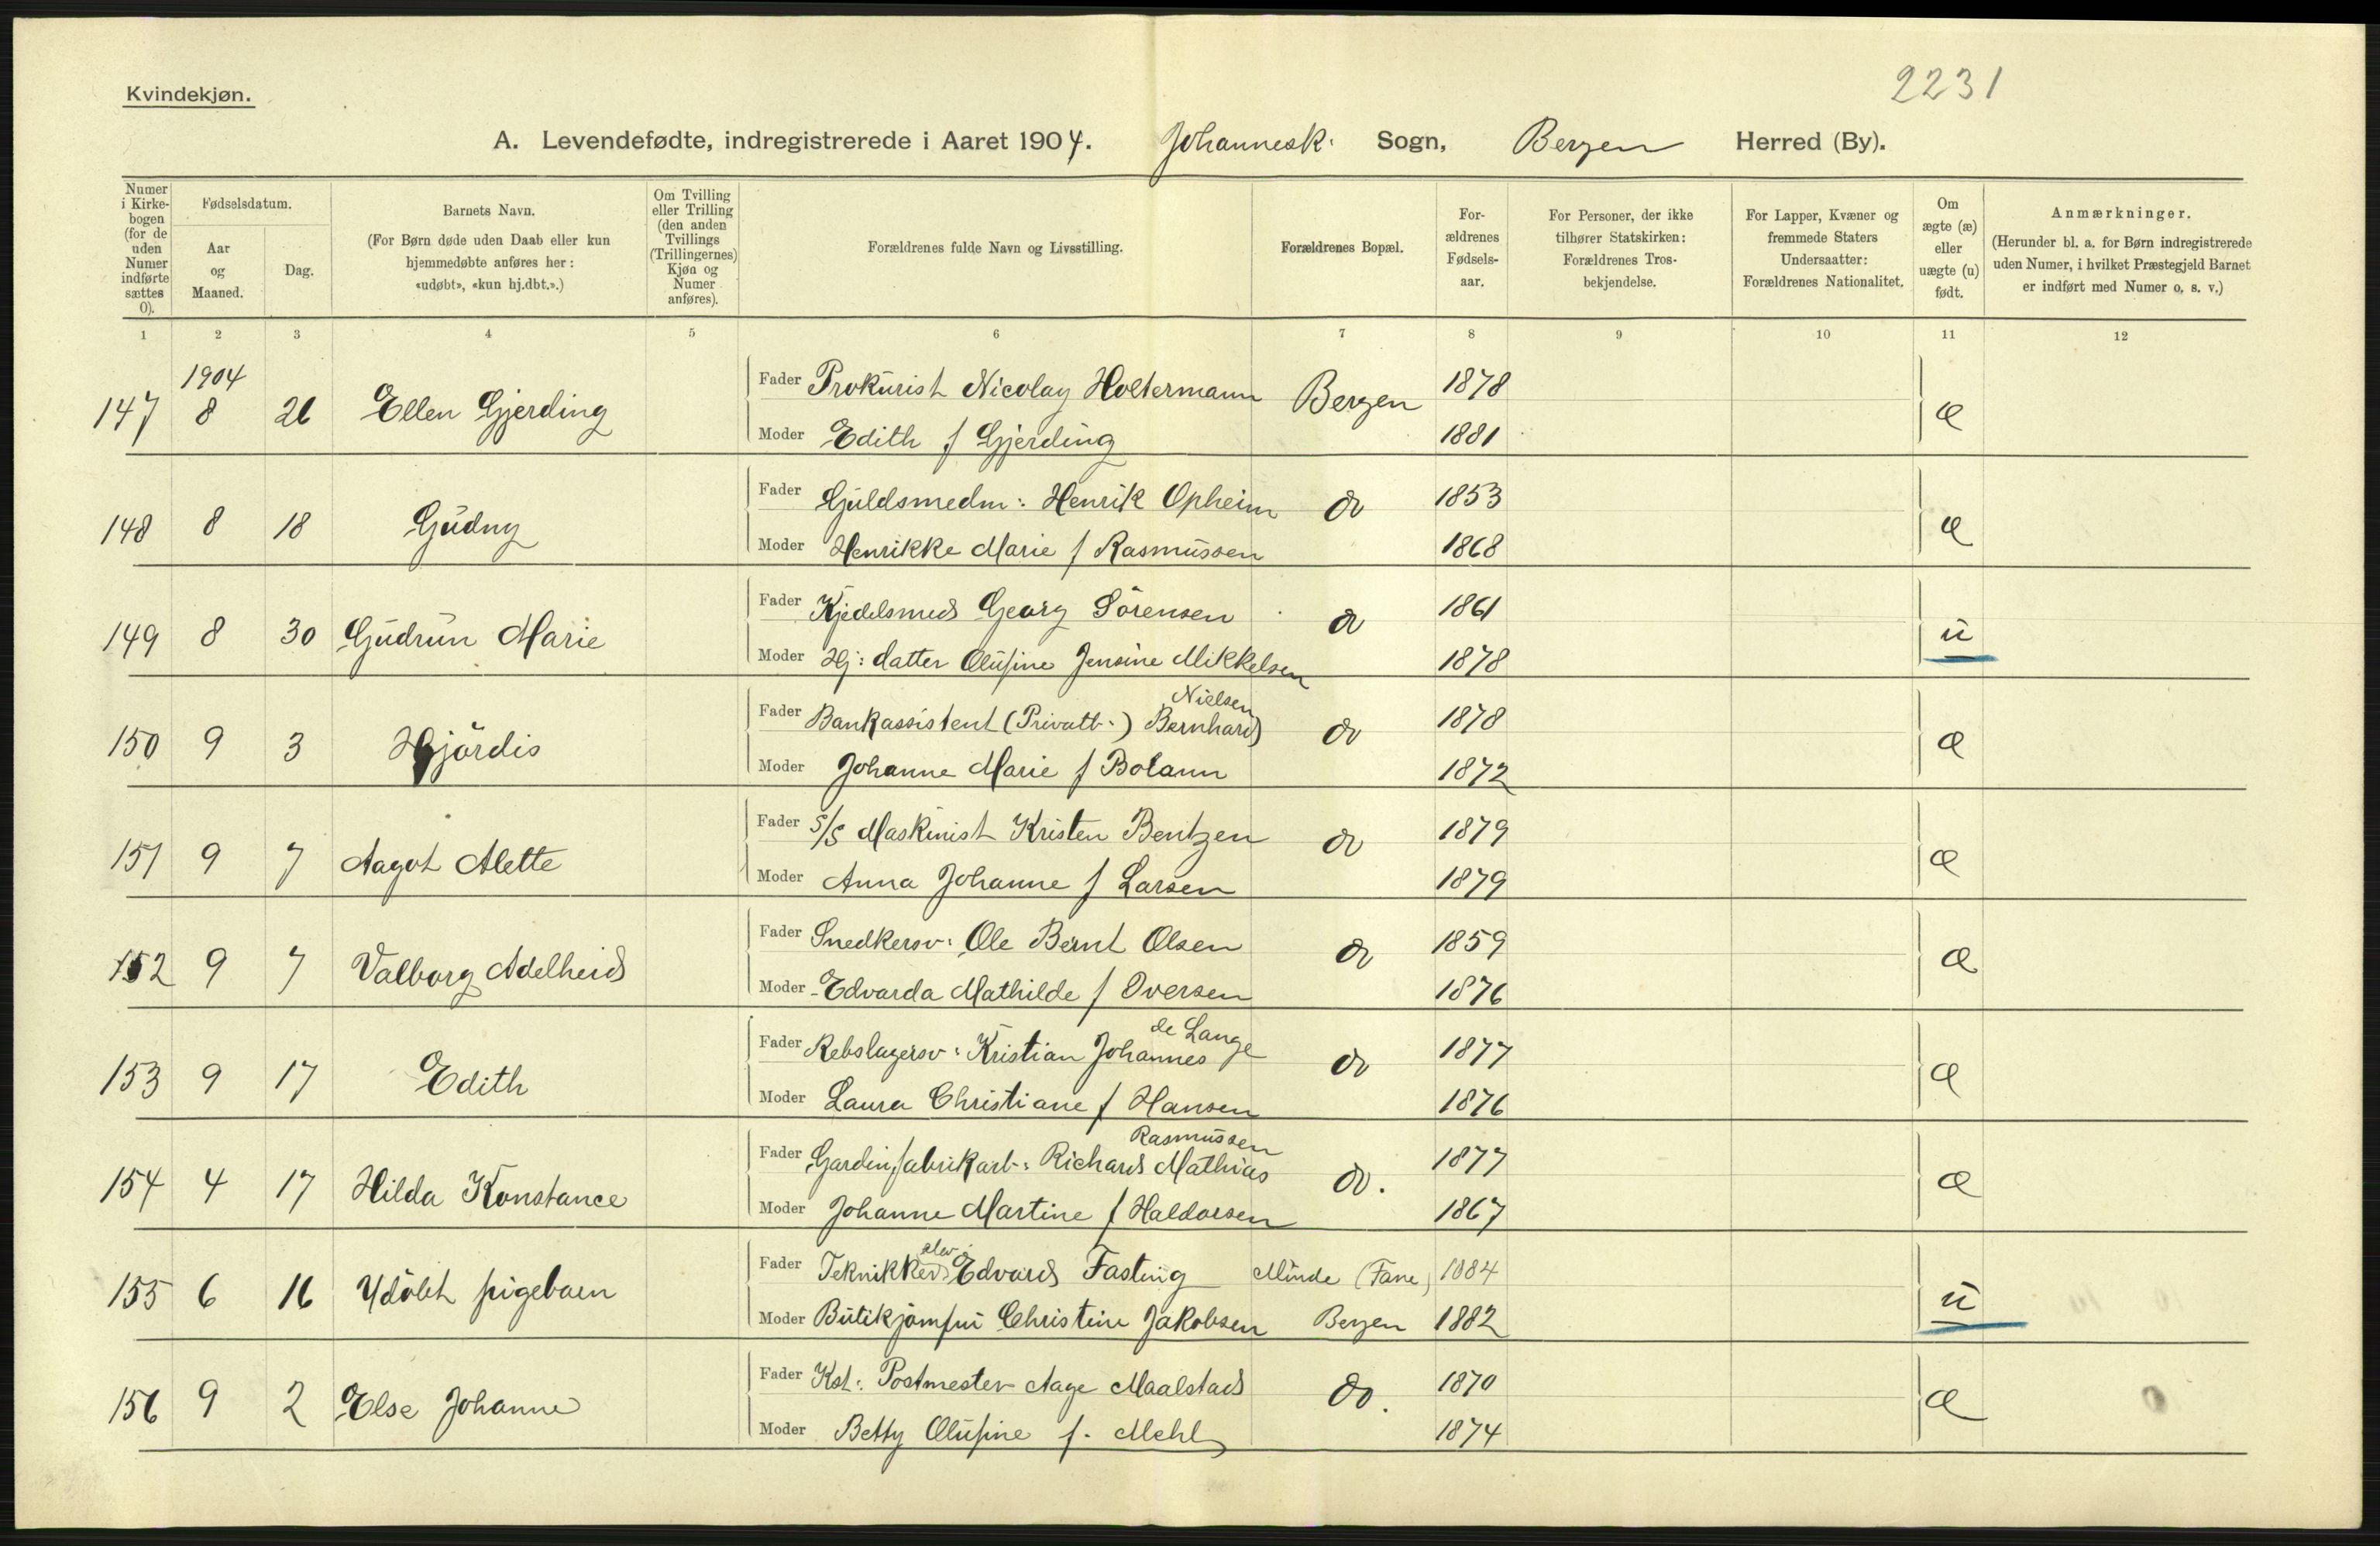 2231
Kvindekjøn.
A. Levendefødte, indregistrerede i Aaret 1904. Johannesk: Sogn, Bergen Herred (By).
Numer i Kirkebogen (for de uden Numer indførte sættes 0).
Fødselsdatum.
Aar og Maaned.
Dag.
Barnets Navn.
(For Børn døde uden Daab eller kun hjemmedøbte anføres her: «udøbt», «kun hj.dbt.».)
Om Tvilling eller Trilling (den anden Tvillings (Trillingernes) Kjøn og Numer anføres).
Forældrenes fulde Navn og Livsstilling.
Forældrenes Bopæl.
For-ældrenes Fødsels-aar.
For Personer, der ikke tilhører Statskirken: Forældrenes Tros-bekjendelse.
For Lapper, Kvæner og fremmede Staters Undersaatter: Forældrenes Nationalitet.
Om ægte (æ) eller uægte (u) født.
Anmærkninger.
(Herunder bl. a. for Børn indregistrerede uden Numer, i hvilket Præstegjeld Barnet er indført med Numer o. s. v.)
1 2 3 4 5 6 7 8 9 10 11 12
1904
147 8 26 Ellen Gjerding Fader Prokurist Nicolay Holtermann Bergen 1878 æ
Moder Edith f Gjerding 1881
148 8 18 Gudny Fader Guldsmedm: Henrik Opheim do 1853 æ
Moder Henrikke Marie f Rasmussen 1868
149 8 30 Gudrun Marie Fader Kjedelsmed Georg Sörensen do 1861 u
Moder Hj: datter Olufine Jensine Mikkelsen 1878
150 9 3 Hjördis Fader Bankassistent (Privatb.) Bernhard Nielsen do 1878 æ
Moder Johanne Marie f Bolann 1872
151 9 7 Aagot Alette Fader S/S Maskinist Kristen Bentzen do 1879 æ
Moder Anna Johanne f Larsen 1879
152 9 7 Valborg Adelheid Fader Snedkersv: Ole Bernt Olsen do 1859 æ
Moder Edvarda Mathilde f Iversen 1876
153 9 17 Edith Fader Rebslagersv: Kristian Johannes de Lange do 1877 æ
Moder Laura Christiane f Hansen 1876
154 4 17 Hilda Konstance Fader Gardinfabrikarb: Richard Mathias Rasmussen do. 1877 æ
Moder Johanne Martine f Haldorsen 1867
155 6 16 Udöbt pigebarn Fader Teknikkerelev Edvard Fasting Minde (Fane) 1884 u
Moder Butikjomfru Christine Jakobsen Bergen 1882
156 9 2 Else Johanne Fader Kst: Postmester Aage Maalstad do. 1870 æ
Moder Betty Olufine f. Mehl 1874